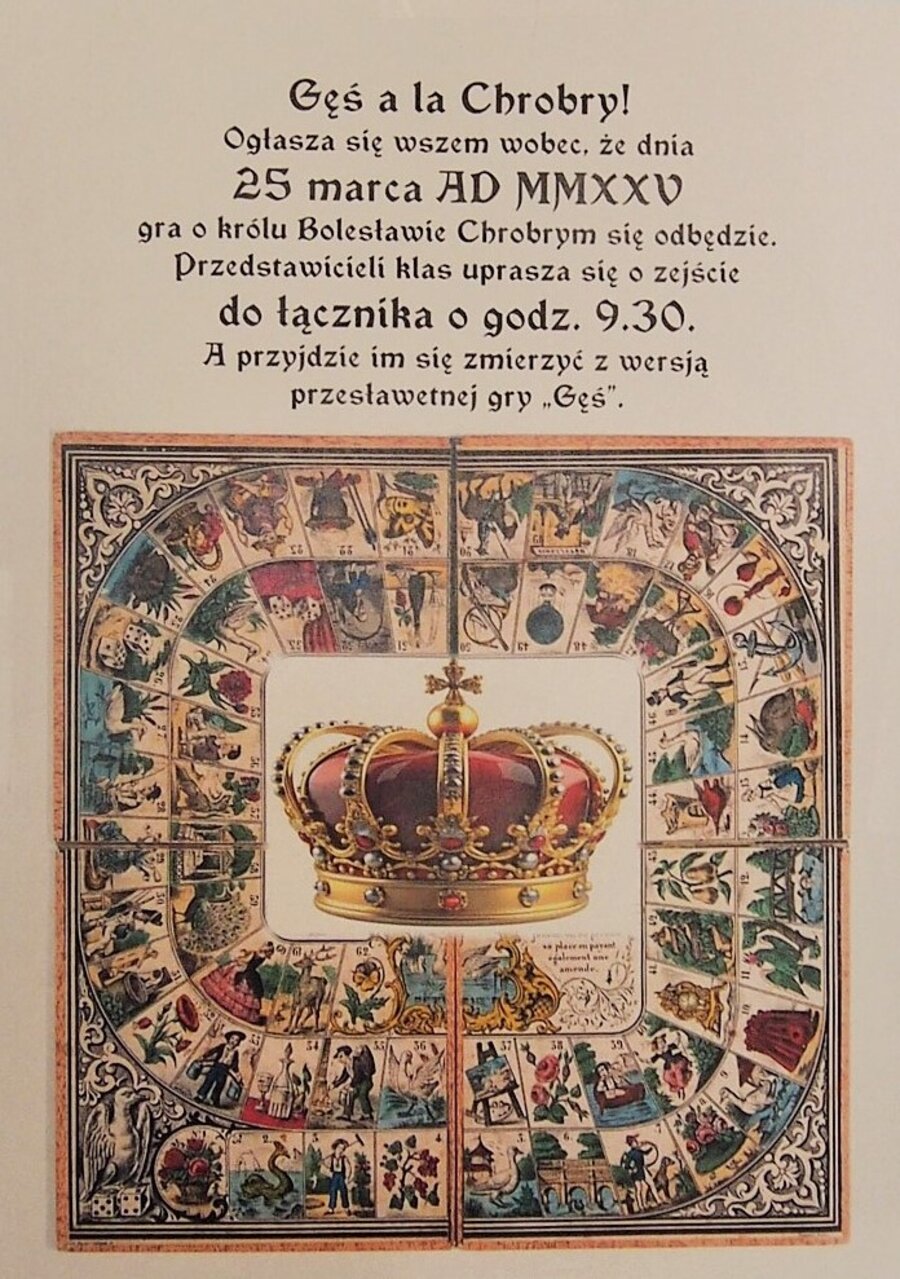 Gęś a la Chrobry!
Ogłasza się wszem wobec, że dnia
25 marca AD MMXXV
gra o królu Bolesławie Chrobrym się odbędzie.
Przedstawicieli klas uprasza się o zejście
do łącznika o godz. 9.30.
A przyjdzie im się zmierzyć z wersją
przesławetnej gry „Gęś”.
sa place en payant
également une
amende.